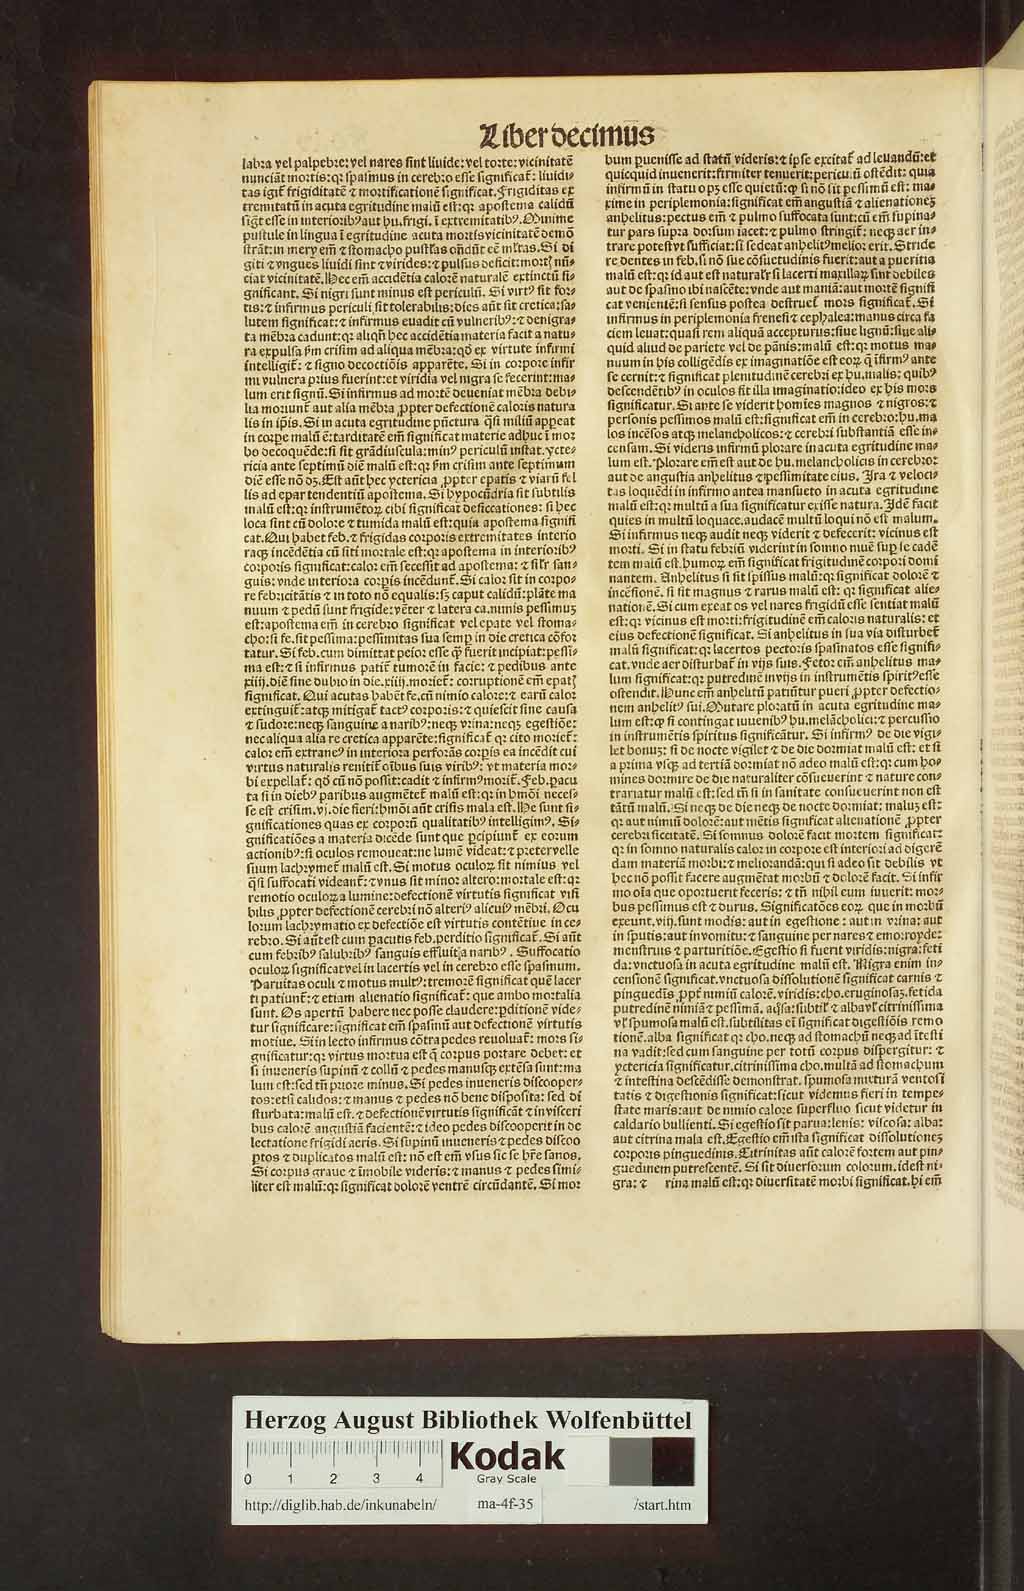 Liber decimus
labra vel palpebre: vel nares sint liuide: vel torte: vicinitatē
nunciāt mortis: qꝛ spasmus in cerebro esse significat̄: liuidi⸗
tas igit̄ frigiditatē ⁊ mortificationē significat. Frigiditas ex
tremitatū in acuta egritudine malū est: qꝛ apostema calidū
sig̅t esse in interioribꝰ aut hu. frigi. ī extremitatibꝰ. Minime
pustule in lingua ī egritudine acuta mortis vicinitatē demō
strāt: in mery em̄ ⁊ stomacho pustl̄as ondūt eē mr̄tas. Si di
giti ⁊ vngues liuidi sint ⁊ virides: ⁊ pulsus deficit: mort nū⸗
ciat vicinitatē. Hec em̄ accidētia calorē naturalē extinctū si⸗
gnificant. Si nigri sunt minus est periculū. Si virtꝰ sit for⸗
tis: ⁊ infirmus periculi sit tolerabilis: dies aūt sit cretica: sa⸗
lutem significat: ⁊ infirmus euadit cū vulneribꝰ: ⁊ denigra⸗
ta mēbra cadunt: qꝛ aliqn̄ hec accidētia materia facit a natu⸗
ra expulsa ẜm crisim ad aliqua mēbra: qd̄ ex virtute infirmi
intelligit̄: ⁊ signo decoctiōis apparēte. Si in corpore infir
mi vulnera prius fuerint: et viridia vel nigra se fecerint: ma⸗
lum erit signū. Si infirmus ad mortē deueniat mēbra debi⸗
lia moriunt̄ aut alia mēbra ꝓpter defectionē caloris natura
lis in ip̄is. Si in acuta egritudine pūctura q̄si miliū appeat
in corpe malū ē: tarditatē em̄ significat materie adhuc ī mor
bo decoquēde: si sit grādiuscula: minꝰ periculū instat. Ycte⸗
ricia ante septimū diē malū est: qꝛ ẜm crisim ante septimum
diē esse nō dꝫ. Est aūt hec yctericia ꝓpter epatis ⁊ viarū fel
lis ad epar tendentiū apostema. Si hypocūdria sit subtilis
malū est: qꝛ instrumētoꝝ cibi significat desiccationes: si hec
loca sint cū dolore ⁊ tumida malū est: quia apostema signifi
cat. Qui habet feb. ⁊ frigidas corporis extremitates interio
raqꝫ incēdētia cū siti mortale est: qꝛ apostema in interioribꝰ
corporis significat: calor em̄ secessit ad apostema: ⁊ sil̄r san⸗
guis: vnde interiora corpis incēdunt̄. Si calor sit in corpo⸗
re febricitātis ⁊ in toto nō equalis: sꝫ caput calidū: plāte ma
nuum ⁊ pedū sunt frigide: vēter ⁊ latera ca. nimis pessimuꝫ
est: apostema em̄ in cerebro significat vel epate vel stoma⸗
cho: si fe. sit pessima: pessimitas sua semp in die cretica cōfor
tatur. Si feb. cum dimittat peior esse q̄ fuerit incipiat: pessi⸗
ma est: ⁊ si infirmus patit̄ tumorē in facie: ⁊ pedibus ante
xiiij. diē sine dubio in die. xiiij. moriet̄: corruptionē em̄ epatꝭ
significat. Qui acutas habēt fe. cū nimio calore: ⁊ earū calor
extinguit̄: atqꝫ mitigat̄ tactꝰ corporis: ⁊ quiescit sine causa
⁊ sudore: neqꝫ sanguine a naribꝰ: neqꝫ vrina: neqꝫ egestiōe:
nec aliqua alia re cretica apparēte: significat̄ qꝛ cito moriet̄:
calor em̄ extraneꝰ in interiora perforās corpis ea incēdit cui
virtus naturalis renitit̄ oībus suis viribꝰ: vt materia mor⸗
bi expellat̄: qd̄ cū nō possit: cadit ⁊ infirmꝰ morit̄. Feb. pacu
ta si in diebꝰ paribus augmētet̄ malū est: qꝛ in hmōi neces⸗
se est crisim. vj. die fieri: hmōi aūt crisis mala est. He sunt si⸗
gnificationes quas ex corporū qualitatibꝰ intelligimꝰ. Si⸗
gnificatiōes a materia dicēde sunt que ꝑcipiunt̄ ex eorum
actionibꝰ: si oculos remoueat: ne lumē videat: ⁊ preter velle
suum lachrymet̄ malū est. Si motus oculoꝝ sit nimius vel
q̄si suffocati videant̄: ⁊ vnus sit minor altero: mortale est: qꝛ
remotio oculoꝝ a lumine: defectionē virtutis significat visi
bilis ꝓpter defectionē cerebri nō alteriꝰ alicuiꝰ mēbri. Ocu
lorum lachrymatio ex defectiōe est virtutis contētiue in ce⸗
rebro. Si aūt est cum pacutis feb. perditio significat̄. Si aūt
cum febribꝰ salubribꝰ sanguis effluit: a naribꝰ. Suffocatio
oculoꝝ significat vel in lacertis vel in cerebro esse spasmum.
Paruitas oculi ⁊ motus multꝰ: tremorē significat quē lacer
ti patiunt̄: ⁊ etiam alienatio significat̄: que ambo mortalia
sunt. Os apertū habere nec posse claudere: ꝑditionē vide⸗
tur significare: significat em̄ spasmū aut defectionē virtutis
motiue. Si in lecto infirmus cōtra pedes reuoluat̄: mors si⸗
gnificatur: qꝛ virtus mortua est q̄ corpus portare debet: et
si inueneris supinū ⁊ collū ⁊ pedes manusqꝫ extēsa sunt: ma
lum est: sed tn̄ priore minus. Si pedes inueneris discooper⸗
tos: etsi calidos: ⁊ manus ⁊ pedes nō bene disposita: sed di
sturbata: malū est. ⁊ defectionē virtutis significāt ⁊ in visceri
bus calorē angustiā facientē: ⁊ ideo pedes discooperit in de
lectatione frigidi aeris. Si supinū inueneris ⁊ pedes discoo
ptos ⁊ duplicatos malū est: nō est em̄ vsus sic se hr̄e sanos.
Si corpus graue ⁊ īmobile videris: ⁊ manus ⁊ pedes simi⸗
liter est malū: qꝛ significat dolorē ventrē circūdantē. Si mor
bum ꝑuenisse ad statū videris: ⁊ ipse excitat̄ ad leuandū: et
quicquid inuenerit: firmiter tenuerit: pericu. ū ostēdit: quia
infirmū in statu opꝫ esse quietū: ꝙ si nō sit pessimū est: ma⸗
xime in periplemonia: significat em̄ angustiā ⁊ alienationeꝫ
anhelitus: pectus em̄ ⁊ pulmo suffocata sunt: cū em̄ supina⸗
tur pars supra dorsum iacet: ⁊ pulmo stringit̄: neqꝫ aer in⸗
trare potest vt sufficiat: si sedeat anhelitꝰ melior erit. Stride
re dentes in feb. si nō sue cōsuetudinis fuerit: aut a pueritia
malū est: qꝛ id aut est natural̄r si lacerti maxillaꝝ sint debiles
aut de spasmo ibi nascēte: vnde aut maniā: aut mortē signifi
cat venientē: si sensus postea destruet̄ mors significat̄. Si
infirmus in periplemonia frenesi ⁊ cephalea: manus circa fa
ciem leuat: quasi rem aliquā accepturus: siue lignū: siue ali⸗
quid aliud de pariete vel de pānis: malū est: qꝛ motus ma⸗
nuum in his colligēdis ex imaginatiōe est eoꝝ q̄ īfirmꝰ ante
se cernit: ⁊ significat plenitudinē cerebri ex hu. malis: quibꝰ
descendētibꝰ in oculos fit illa imaginatio: ideo ex his mors
significatur. Si ante se viderit homīes magnos ⁊ nigros: ⁊
personis pessimos malū est: significat em̄ in cerebro: hu. ma
los incēsos atqꝫ melancholicos: ⁊ cerebri substantiā esse in⸗
censam. Si videris infirmū plorare in acuta egritudine ma⸗
lum est. Plorare em̄ est aut de hu. melancholicis in cerebro:
aut de angustia anhelitus ⁊ pessimitate eius. Ira ⁊ veloci⸗
tas loquēdi in infirmo antea mansueto in acuta egritudine
malū est: qꝛ multū a sua significatur exisse natura. Idē facit
quies in multū loquace. audacē multū loqui nō est malum.
Si infirmus neqꝫ audit neqꝫ viderit ⁊ defecerit: vicinus est
morti. Si in statu febriū viderint in somno muē sup se cadē
tem malū est. humoꝝ em̄ significat frigitudinē corpori domi
nantem. Anhelitus si sit spissus malū: qꝛ significat dolorē ⁊
incēsionē. si sit magnus ⁊ rarus malū est: qꝛ significat alie⸗
nationē. Si cum exeat os vel nares frigidū esse sentiat malū
est: qꝛ vicinus est morti: frigitudinē em̄ caloris naturalis: et
eius defectionē significat. Si anhelitus in sua via disturbet̄
malū significat: qꝛ lacertos pectoris spasmatos esse signifi⸗
cat. vnde aer disturbat̄ in vijs suis. Fetor em̄ anhelitus ma⸗
lum significat: qꝛ putredinē in vijs in instrumētis spiritꝰ esse
ostendit. Hunc em̄ anhelitū patiūtur pueri ꝓpter defectio⸗
nem anhelitꝰ sui. Mutare ploratū in acuta egritudine ma⸗
lum est: ꝙ si contingat iuuenibꝰ hu. melācholici: ⁊ percussio
in instrumētis spiritus significātur. Si infirmꝰ de die vigi⸗
let bonuꝫ: si de nocte vigilet ⁊ de die dormiat malū est: et si
a prima vsqꝫ ad tertiā dormiat nō adeo malū est: qꝛ cum ho⸗
mines dormire de die naturaliter cōsueuerint ⁊ nature con⸗
trariatur malū est: sed tn̄ si in sanitate consueuerint non est
tātū malū. Si neqꝫ de die neqꝫ de nocte dormiat: maluꝫ est:
qꝛ aut nimiū dolorē: aut mētis significat alienationē ꝓpter
cerebri siccitatē. Si somnus dolorē facit mortem significat:
qꝛ in somno naturalis calor in corpore est interiori ad digerē
dam materiā morbi: ⁊ meliorandā: qui si adeo sit debilis vt
hec nō possit facere augmētat morbū ⁊ dolorē facit. Si infir
mo oīa que oportuerit feceris: ⁊ tn̄ nihil eum iuuerit: mor⸗
bus pessimus est ⁊ durus. Significatōes eoꝝ que in morbū
exeunt. vij. sunt modis: aut in egestione: aut in vrina: aut
in sputis: aut in vomitu: ⁊ sanguine per nares ⁊ emoroyde:
menstruis ⁊ parturitiōe. Egestio si fuerit viridis: nigra: feti
da: vnctuosa in acuta egritudine malū est. Nigra enim in⸗
censionē significat. vnctuosa dissolutionē significat carnis ⁊
pinguedīs ꝓpt̄ nimiū calorē. viridis: cho. eruginosaꝫ. fetida
putredinē nimiā ⁊ pessimā. aq̄sa: subtil̄ ⁊ alba vl̄ citrinissima
vl̄ spumosa malū est. subtilitas em̄ significat digestiōis remo
tionē. alba significat qꝛ cho. neqꝫ ad stomachū neqꝫ ad ītesti
na vadit: sed cum sanguine per totū corpus dispergitur: ⁊
yctericia significatur. citrinissima cho. multā ad stomachum
⁊ intestina descēdisse demonstrat. spumosa mixturā ventosi
tatis ⁊ digestionis significat: sicut videmus fieri in tempe⸗
state maris: aut de nimio calore superfluo sicut videtur in
caldario bullienti. Si egestio sit parua: lenis: viscosa: alba:
aut citrina mala est. Egestio em̄ ista significat dissolutioneꝫ
corporis pinguedinis. Citrinitas aūt calorē fortem aut pin⸗
guedinem putrescentē. Si sit diuersorum colorum. id est ni⸗
gra: ⁊ rina malū est: qꝛ diuersitatē morbi significat. hi em̄
Herzog August Bibliothek Wolfenbüttel
0 1 2 3 4
Kodak
Gray Scale
http://diglib.hab.de/inkunabeln/ ma-4f-35 /start.htm